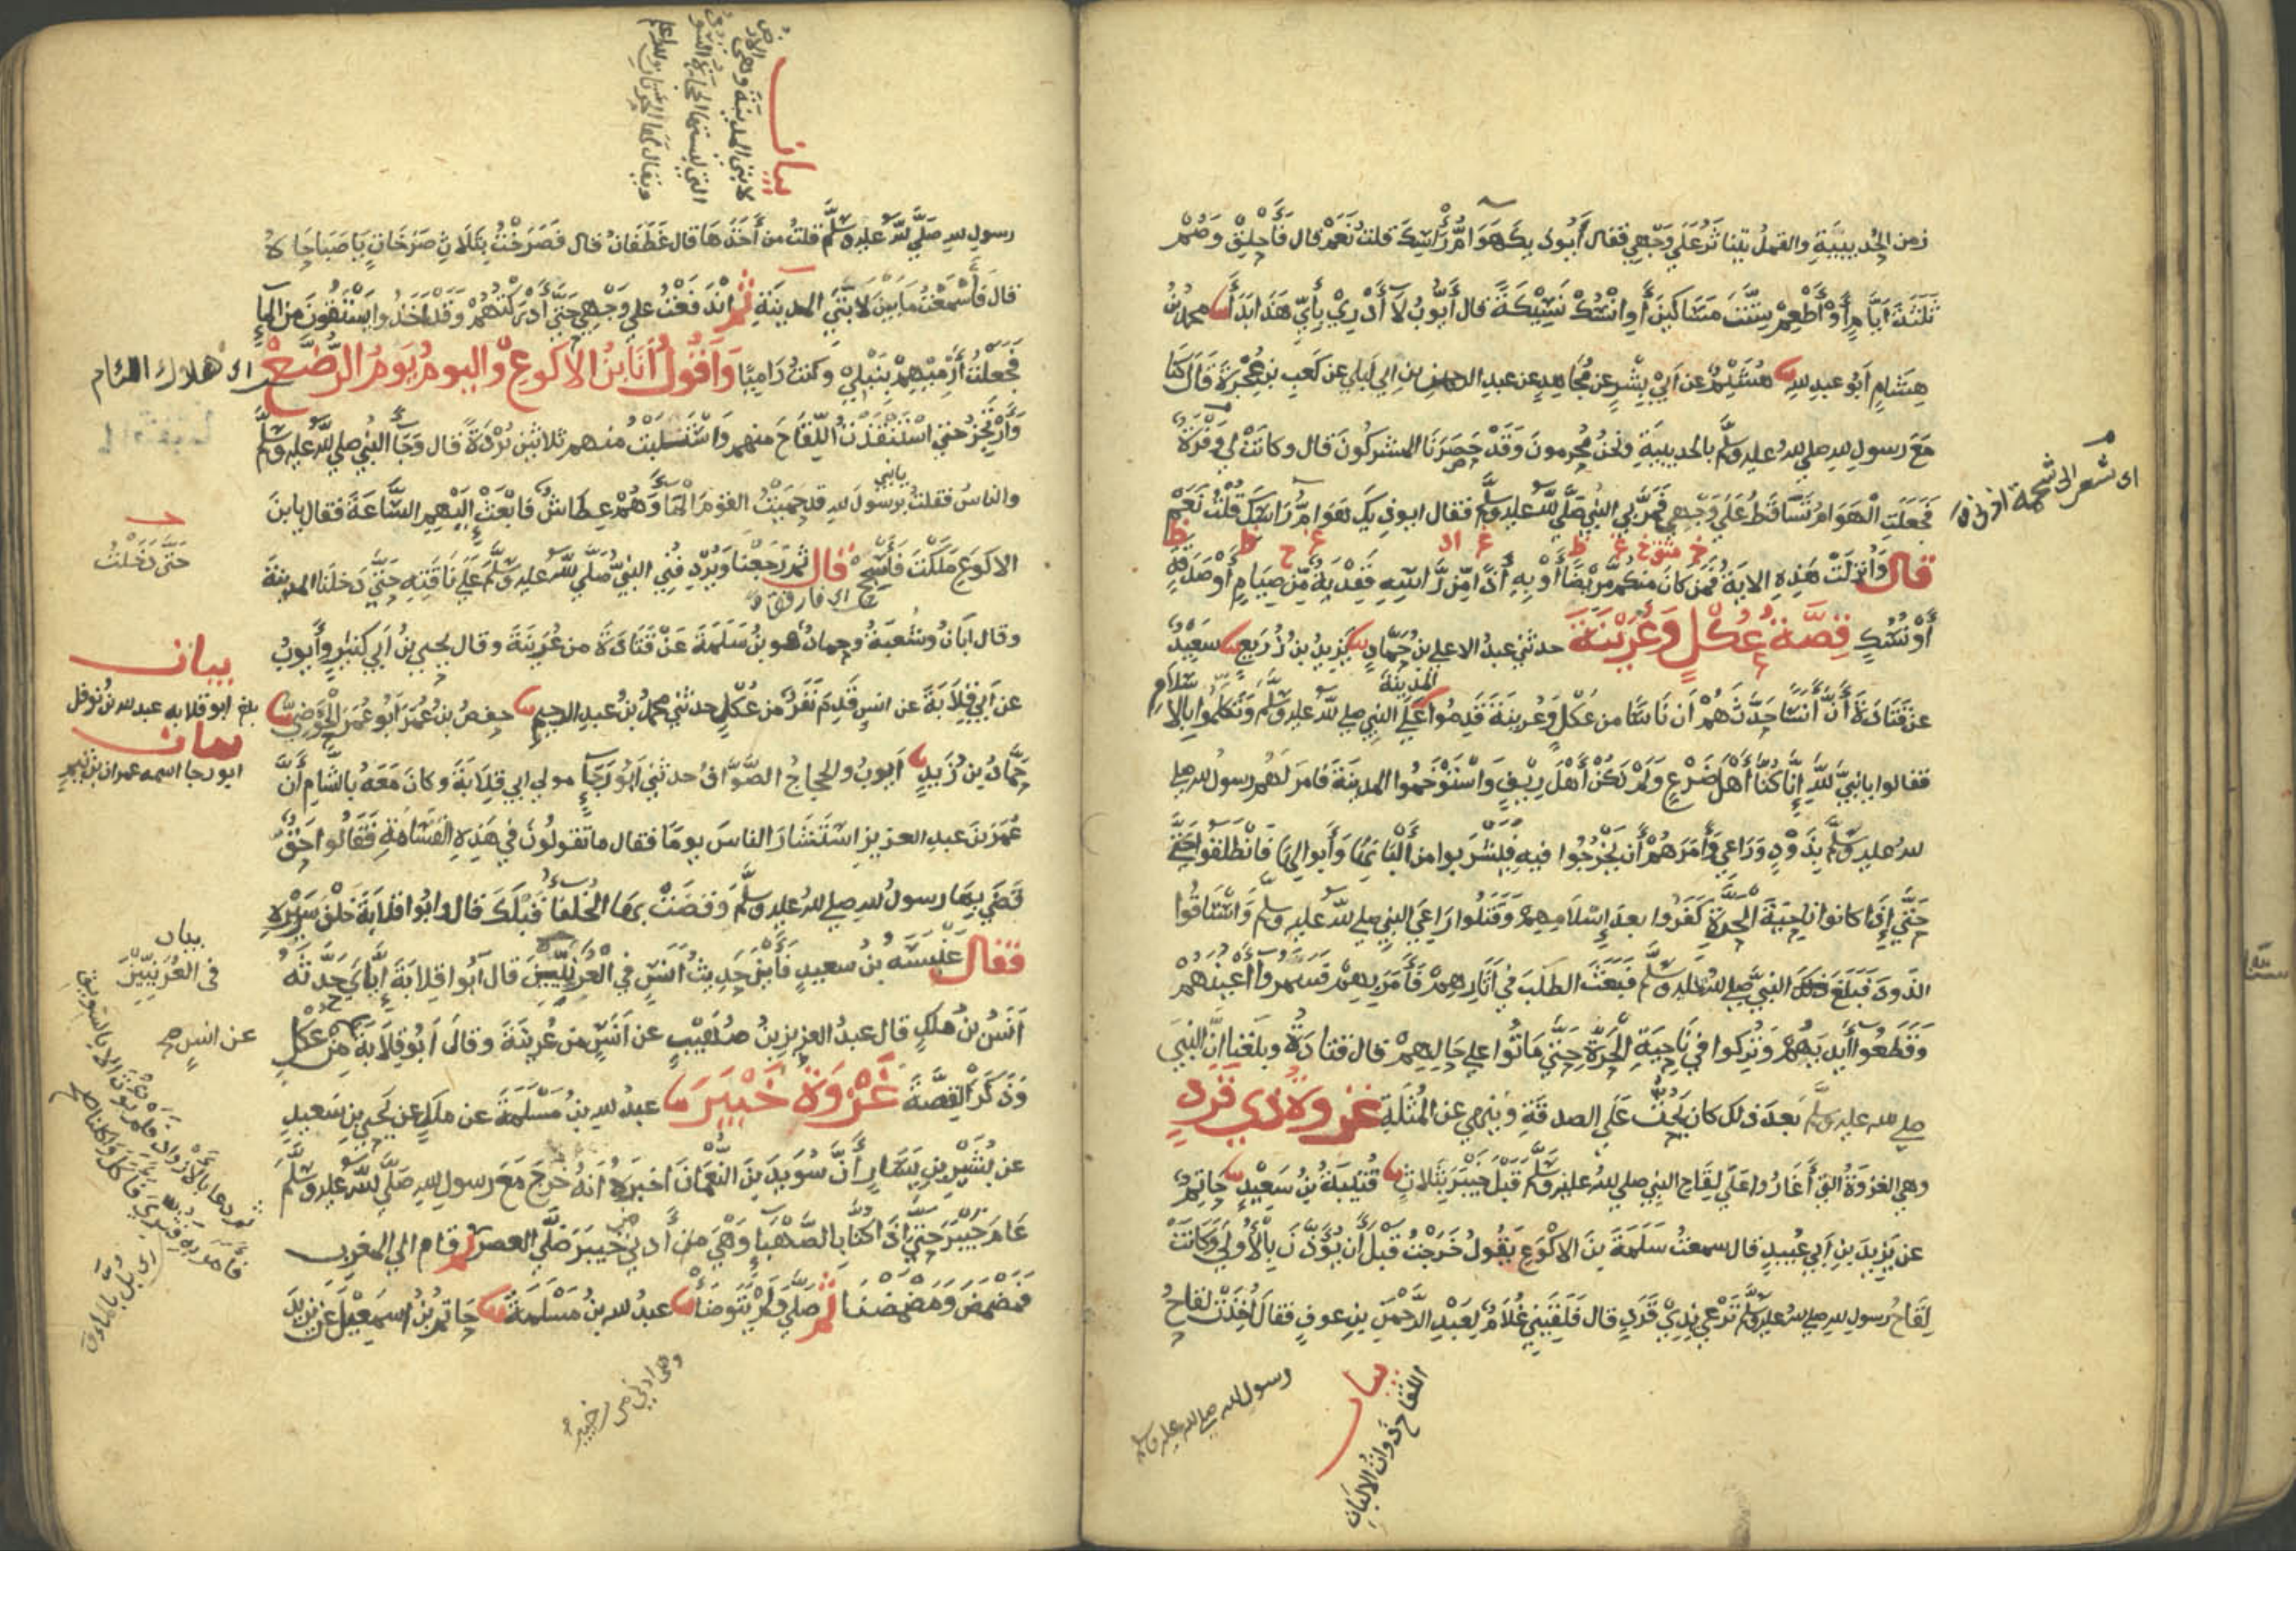 زمن الحديبية والقمل يتناثر على وجهي فقال أيوذيك هوام رأسك قلت نعم قال فاحلق وصم
ثلثة ايام أو أطعم ستة مساكين أو انسك نسيكة قال أيوب لا أدري بأي هذا ابدأ محمد بن
هشام أبو عبد الله هشيم عن أبي بشر عن مجاهد عن عبد الرحمن بن ابي ليلي عن كعب بن عجرة قال كنا
مع رسول الله صلى الله عليه وسلم بالحديبية ونحن محرمون وقد حصرنا المشركون قال وكانت لي وفرة
اي شعر الى شحمة اذني
فجعلت الهوام تساقط على وجهي فمر بي النبي صلى الله عليه وسلم فقال ايوذيك هوام رأسك قلت نعم
قال وأنزلت هذه الاية فمن كان منكم مريضا أو به أذا من رأسه ففدية من صيام أو صدقة
أو نسك قصة عكل وعرينة حدثني عبد الاعلى بن حماد يزيد بن زريع سعيد
عن قتادة أن أنسا حدثهم أن ناسا من عكل وعرينة قدموا المدينة على النبي صلى الله عليه وسلم وتكلموا بالاسلام
فقالوا يا نبي الله إنا كنا أهل ضرع ولم نكن أهل ريف واستوخموا المدينة فامر لهم رسول الله صلى
الله عليه وسلم بذود وراعي وأمرهم أن يخرجوا فيه فليشربوا من ألبانها وأبوالها فانطلقوا
حتى إذا كانوا ناحية الحرة كفروا بعد إسلامهم وقتلوا راعي النبي صلى الله عليه وسلم واستاقوا
الذود فبلغ النبي صلى الله عليه وسلم فبعث الطلب في آثارهم فأمر بهم فسمروا أعينهم
وقطعوا أيديهم وتركوا في ناحية الحرة حتى ماتوا على حالهم قال قتادة وبلغنا ان النبي
صلى الله عليه وسلم بعد ذلك كان يحث على الصدقة وينهي عن المثلة غزوة ذي قرد
وهي الغزوة التي أغاروا على لقاح النبي صلى الله عليه وسلم قبل خيبر بثلاث قتيبة بن سعيد حاتم
عن يزيد بن أبي عبيد قال سمعت سلمة بن الاكوع يقول خرجت قبل أن يؤذن بالأولى وكانت
لقاح رسول الله صلى الله عليه وسلم ترعي بذي قرد قال فلقيني غلام لعبد الرحمن بن عوف فقال أخذت لقاح
رسول الله صلى الله عليه وسلم
بيان
اللقاح ذوات الالبان
بيان
لابتي المدينة وهي الارض
رسول الله صلى الله عليه وسلم قلت من أخذها قال غطفان قال فصرخت بثلاث صرخات يا صباحاه
قال فأسمعت ما بين لابتي المدينة ثم اندفعت على وجهي حتى أدركتهم وقد أخذوا يستقون من الماء
فجعلت أرميهم بنبلي وكنت راميا وأقول أنا ابن الاكوع واليوم يوم الرضع
اي هلاك اللئام
وأرتجز حتى استنقذت اللقاح منهم واستلبت منهم ثلاثين بردة قال وجا النبي صلى الله عليه وسلم
والناس فقلت يا رسول الله قد حميت القوم الما وهم عطاش فابعث إليهم الساعة فقال يا ابن
يا نبي
الاكوع ملكت فأسجح قال ثم رجعنا ويردفني النبي صلى الله عليه وسلم على ناقته حتى دخلنا المدينة
حتى دخلت
وقال ابان وشعبة وحماد هو بن سلمة عن قتادة من عرينة وقال يحيي بن أبي كثير وأيوب
بيان
عن ابي قلابة عن انس قدم نفر من عكل حدثني محمد بن عبد الرحيم حفص بن عمر أبو عمر الحوضي
ابو قلابه عبد الله
بيان
ابو رجا اسمه عمران بن تيم
حماد بن زيد أيوب والحجاج الصواف حدثني أبو رجا مولي ابي قلابة وكان معه بالشام أن
عمر بن عبد العزيز استشار الناس يوما فقال ما تقولون في هذه القسامة فقالوا حق
قضي بها رسول الله صلى الله عليه وسلم وقضت بها الخلفا قبلك قال وابوا قلابة خلف سريره
بيان
في العرنيين
فقال عنبسة بن سعيد فأين حديث أنس في العرنيين قال أبوا قلابة إياي حدثه
أنس بن ملك قال عبد العزيز بن صهيب عن أنس من عرينة وقال أبو قلابة من عكل
عن انس صح
وذكر القصة غزوة خيبر عبد الله بن مسلمة عن ملك عن يحيى بن سعيد
عن بشير بن يسار أن سويد بن النعمان اخبره انه خرج مع رسول الله صلى الله عليه وسلم
عام خيبر حتى إذا كنا بالصهبا وهي من أدني خيبر صلى العصر ثم قام الي المغرب
فمضمض ومضمضنا ثم صلى ولم يتوضأ عبد الله بن مسلمة حاتم بن اسمعيل عن يزيد
ثم دعا بالازواد فلم يؤت الا بالسويق
فامر به فثري فاكل واكلنا صح
اي بل بالماء
وهي ادني من خيبر